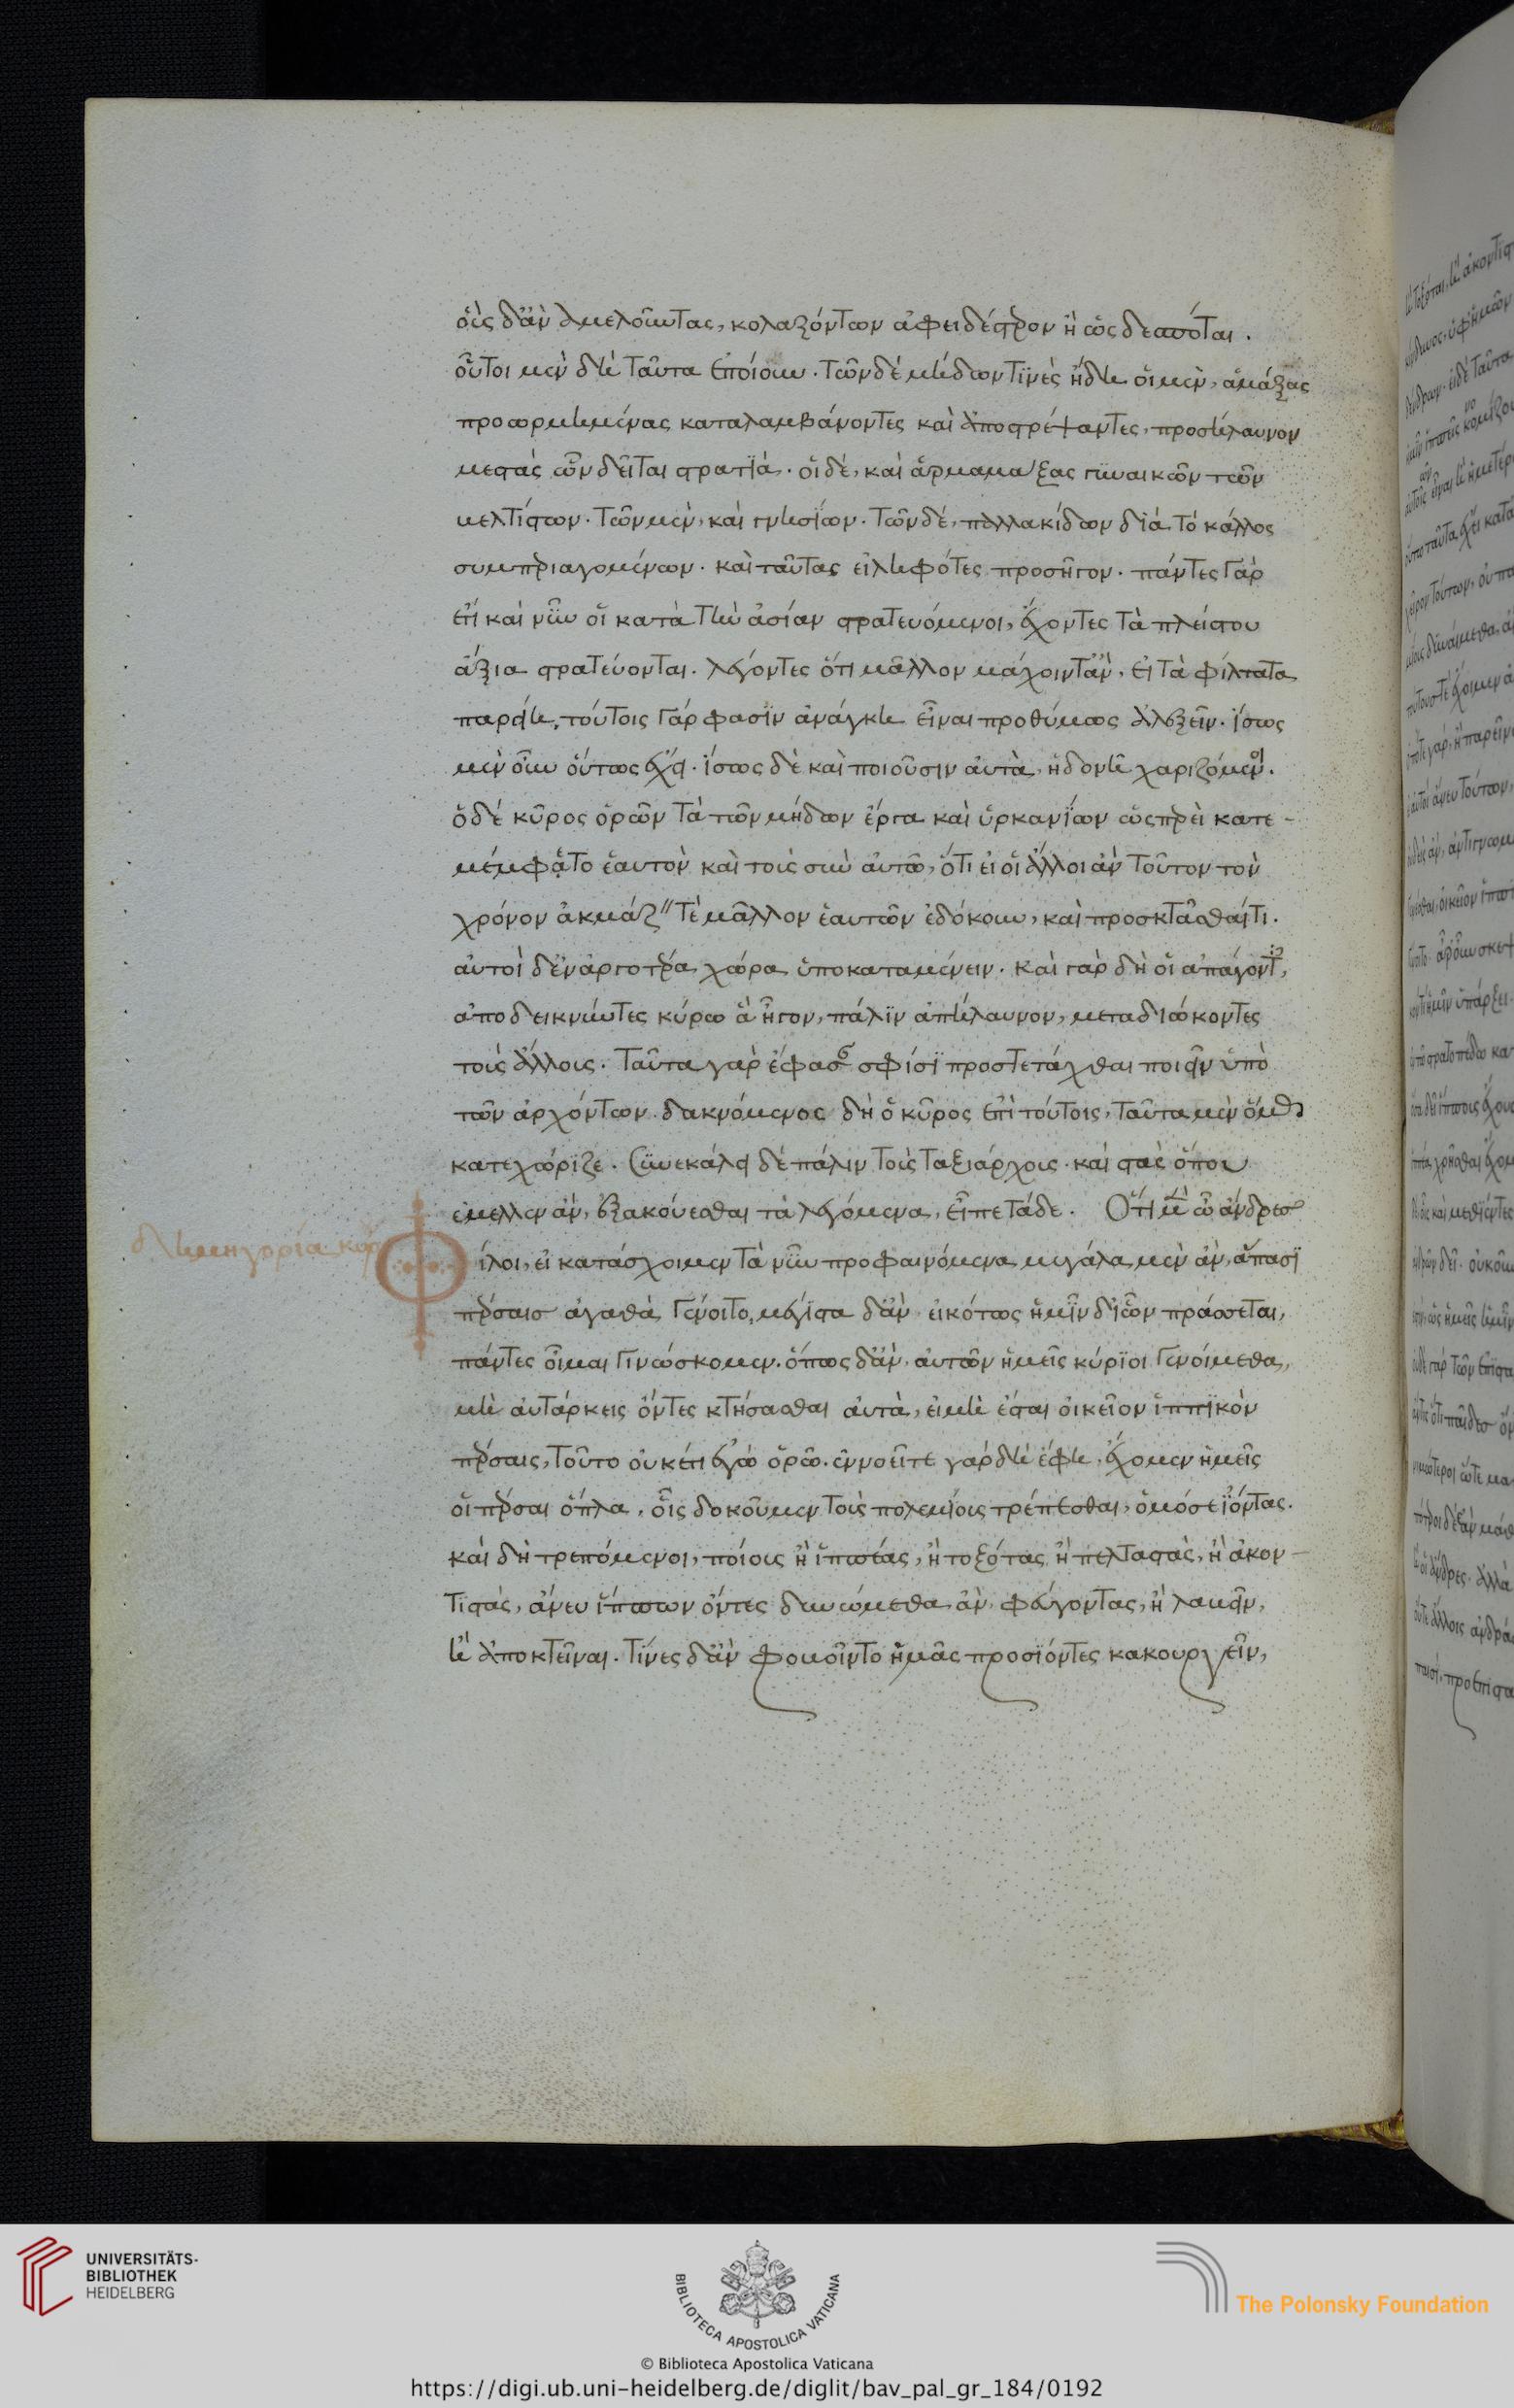 οἷς δ' ἂν ἀμελοῦντας, κολαζόντων ἀφειδέστερον ἢ ὡς δεσπόται.
οὗτοι μὲν δὴ ταῦτα ἐποίουν. τῶν δὲ μήδων τινὲς ἤδη οἱ μὲν, ἁμάξας
προωρμημένας καταλαμβάνοντες καὶ ἀποστρέψαντες, προσήλαυνον
μεστὰς ὧν δεῖται στρατιά. οἱ δὲ, καὶ ἁρμαμάξας γυναικῶν τῶν
βελτίστων. τῶν μὲν, καὶ γνησίων. τῶν δὲ, παλλακίδων διὰ τὸ κάλλος
συμπεριαγομένων. καὶ ταύτας εἰληφότες προσῆγον. πάντες γὰρ
ἔτι καὶ νῦν οἱ κατὰ τὴν ἀσίαν στρατευόμενοι, ἔχοντες τὰ πλείστου
ἄξια στρατεύονται. λέγοντες ὅτι μᾶλλον μάχοιντ' ἂν, εἰ τὰ φίλτατα
παρείη, τούτοις γάρ φασιν ἀνάγκη εἶναι προθύμως ἀλέξειν. ἴσως
μὲν οὖν οὕτως ἔχει. ἴσως δὲ καὶ ποιοῦσιν αὐτὰ, ἡδονῇ χαριζόμενοι.
ὁ δὲ κῦρος ὁρῶν τὰ τῶν μήδων ἔργα καὶ ὑρκανίων ὥσπερ κατε-
μέμφετο ἑαυτὸν καὶ τοὺς σὺν αὐτῷ, ὅτι εἰ οἱ ἄλλοι ἂν τοῦτον τὸν
χρόνον ἀκμάζειν τὲ μᾶλλον ἑαυτῶν ἐδόκουν, καὶ προσκτᾶσθαί τι.
αὐτοὶ δ' ἐν ἀργοτέρα χώρα ὑποκαταμένειν. καὶ γὰρ δὴ οἱ ἀπάγοντες,
ἀποδεικνύντες κύρω ἃ ἦγον, πάλιν ἀπήλαυνον, μεταδιώκοντες
τοὺς ἄλλους. ταῦτα γὰρ ἔφασαν σφίσι προστετάχθαι ποιεῖν ὑπὸ
τῶν ἀρχόντων. δακνόμενος δὴ ὁ κῦρος ἐπὶ τούτοις, ταῦτα μὲν ὅμως
κατεχώριζε. συνεκάλει δὲ πάλιν τοὺς ταξιάρχους. καὶ στὰς ὅπου
ἔμελλεν ἂν, ἐξακούεσθαι τὰ λεγόμενα, εἶπε τάδε. Ὅτι μὲν ὦ ἄνδρες
δημηγορία κύρου
Φίλοι, εἰ κατάσχοιμεν τὰ νῦν προφαινόμενα μεγάλα μὲν ἂν, ἅπασι
πέρσαις ἀγαθὰ γένοιτο, μέγιστα δ' ἂν εἰκότως ἡμῖν δι' ὧν πράσσεται,
πάντες οἶμαι γινώσκομεν. ὅπως δ' ἂν, αὐτῶν ἡμεῖς κύριοι γενοίμεθα,
μὴ αὐτάρκεις ὄντες κτήσασθαι αὐτὰ, εἰ μὴ ἔσται οἰκεῖον ἱππικὸν
πέρσαις, τοῦτο οὐκέτι ἐγὼ ὁρῶ. ἐννοεῖτε γὰρ δὴ ἔφη. ἔχομεν ἡμεῖς
οἱ πέρσαι ὅπλα, οἷς δοκοῦμεν τοὺς πολεμίους τρέπεσθαι, ὁμόσε ἰόντας.
καὶ δὴ τρεπόμενοι, ποίους ἢ ἱππέας, ἢ τοξότας ἢ πελταστὰς, ἢ ἀκον-
τιστὰς, ἄνευ ἵππων ὄντες δυνώμεθα ἂν, φεύγοντας, ἢ λαβεῖν,
ἢ ἀποκτεῖναι. τίνες δ' ἂν φοβοῖντο ἡμᾶς προσιόντες κακουργεῖν,
UNIVERSITÄTS-
BIBLIOTHEK
HEIDELBERG
BIBLIOTECA APOSTOLICA VATICANA
© Biblioteca Apostolica Vaticana
The Polonsky Foundation
https://digi.ub.uni-heidelberg.de/diglit/bav_pal_gr_184/0192